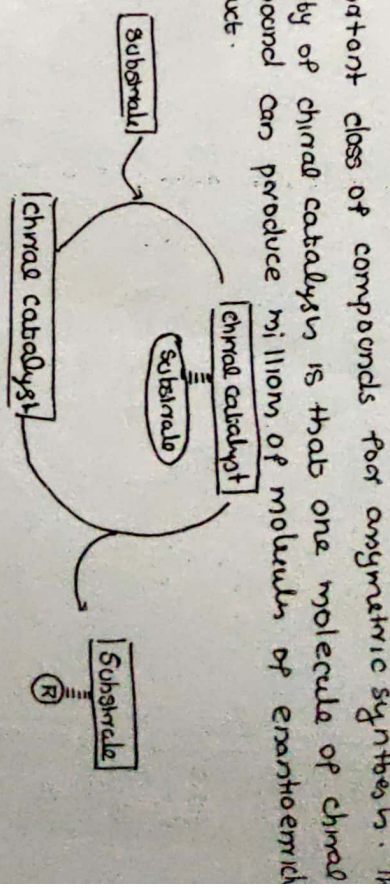 atant class of compounds for assymetric synthesis.
ty of chiral catalysts is that one molecule of chiral
ound can produce millions of molecules of enantioenrich
uct.
substrate
chiral catalyst
substrate
chiral catalyst
Substrate
R